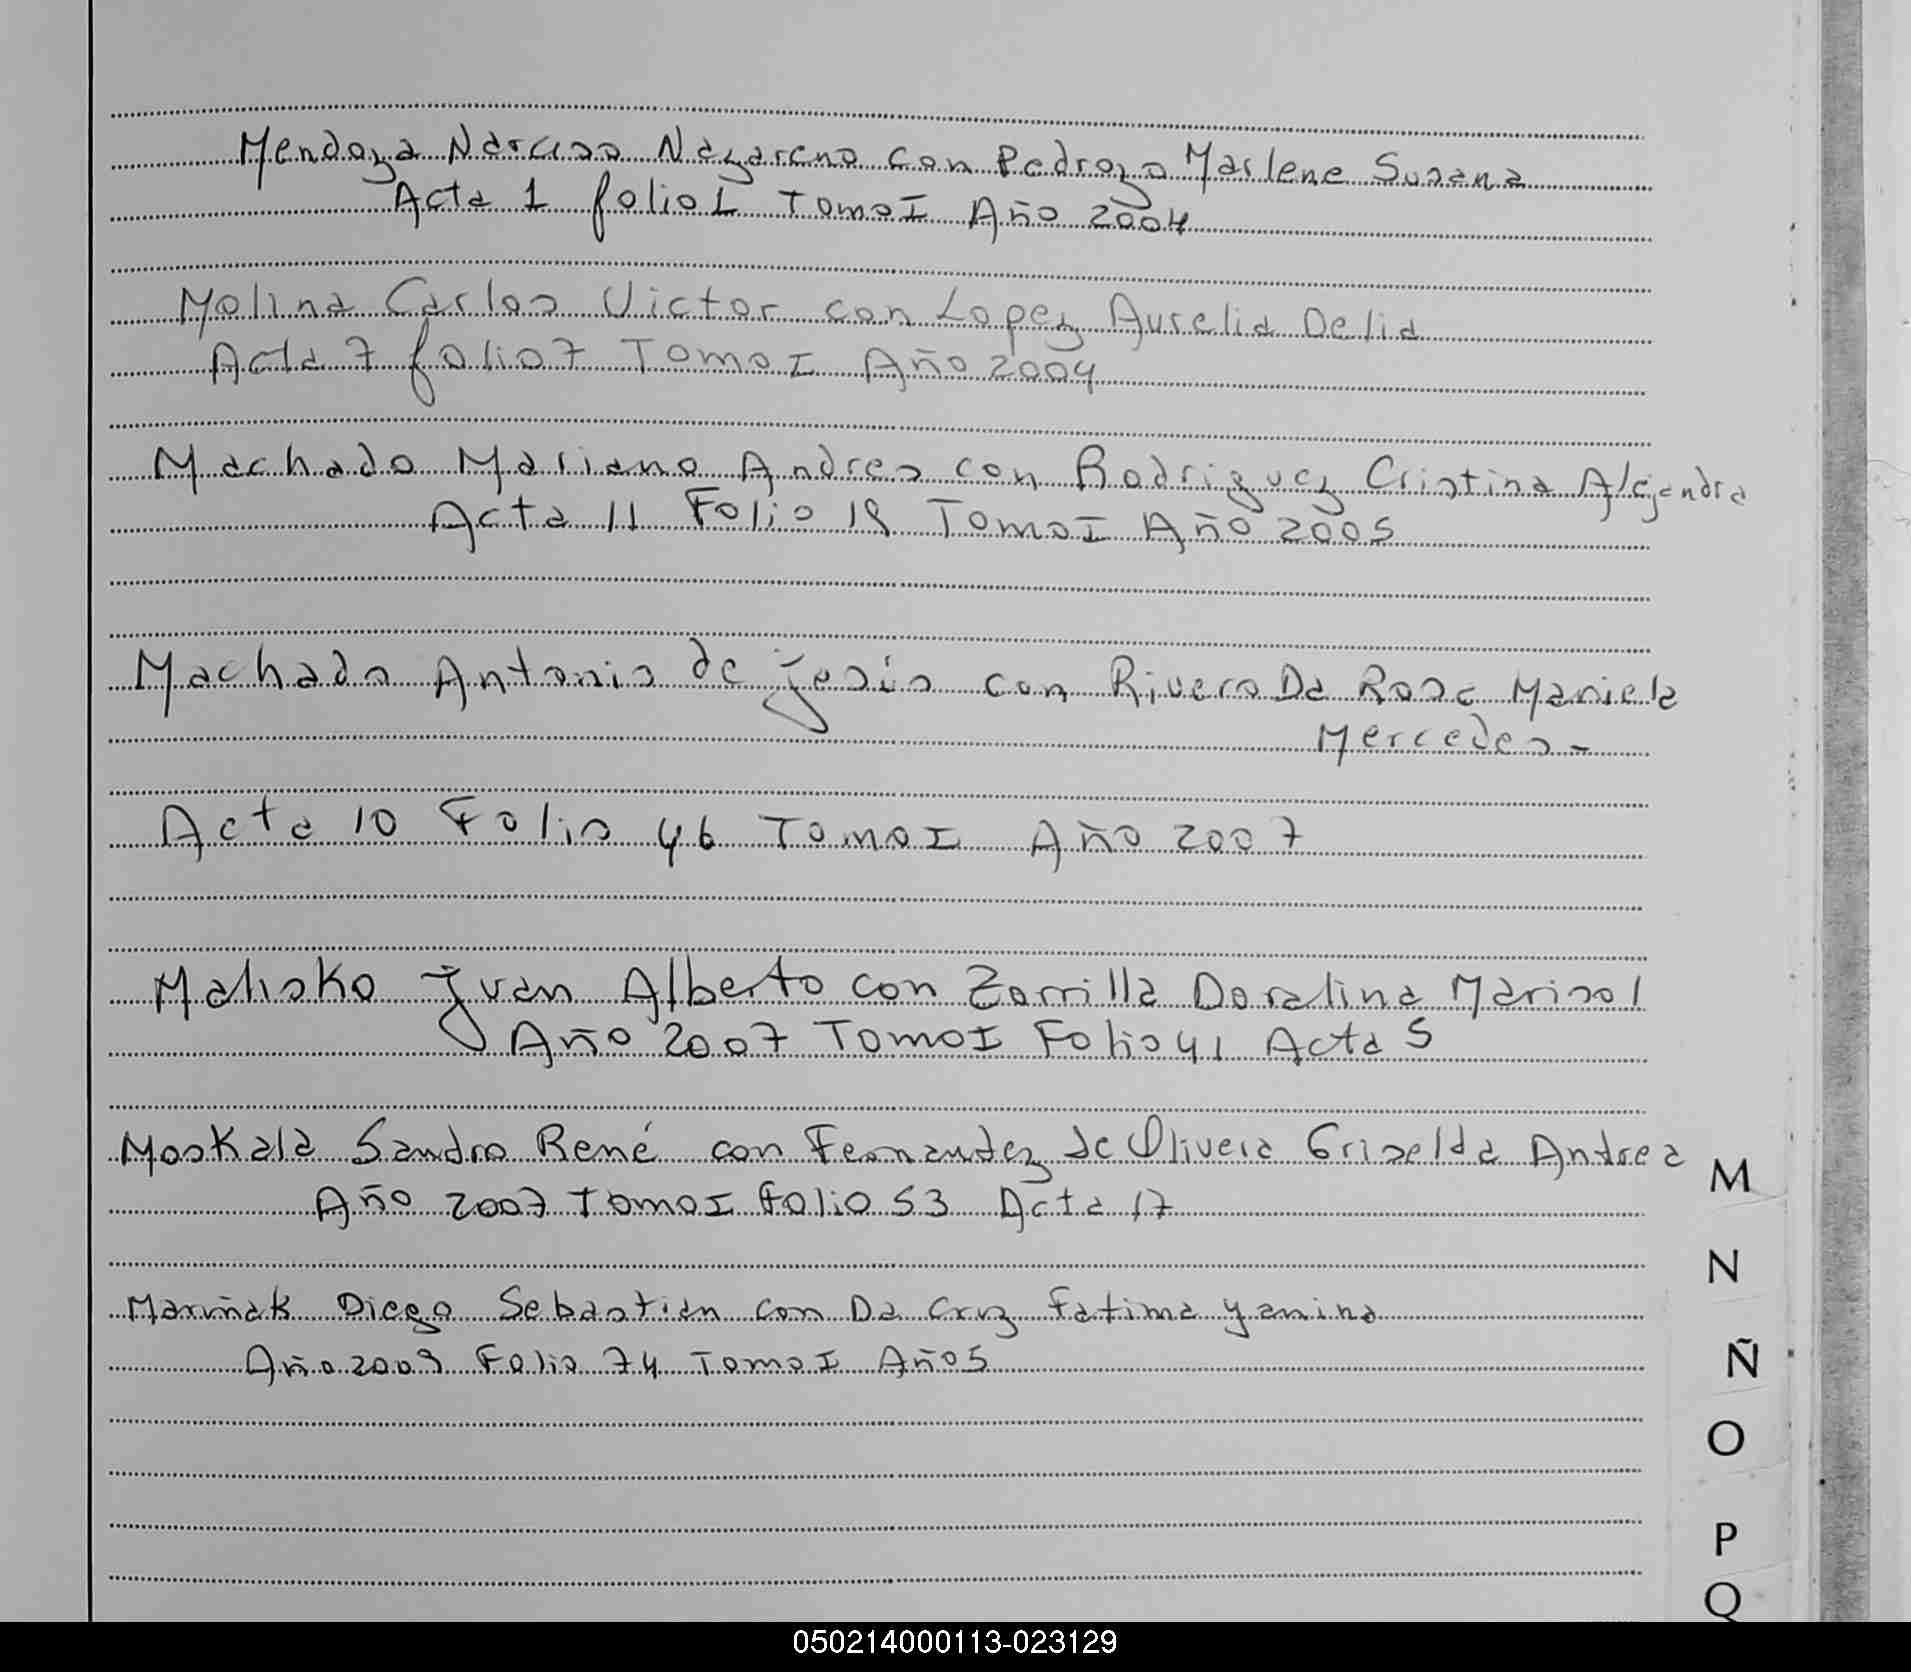 Mendoza Narciso Nazareno con Pedrozo Marlene Susana
Acta 1 folio 1 Tomo I Año 2004
Molina Carlos Victor con Lopez Aurelia Delia
Acta 7 folio 7 Tomo I Año 2004
Machado Mariano Andres con Rodriguez Cristina Alejandra
Acta 11 Folio 18 Tomo I Año 2005
Machado Antonio de Jesús con Rivero Da Rosa Mariela
Mercedes-
Acta 10 Folio 46 Tomo I Año 2007
Malisko Juan Alberto con Zorrilla Doralina Marisol
Año 2007 Tomo I Folio 41 Acta 5
Moskala Sandro René con Fernandez de Olivera Griselda Andrea
Año 2007 Tomo I folio 53 Acta 17
Diego Sebastian con Da Cruz Fatima Yanina
Año 2009 Folio 74 Tomo I Año 5
M
N
Ñ
O
P
Q
050214000113-023129